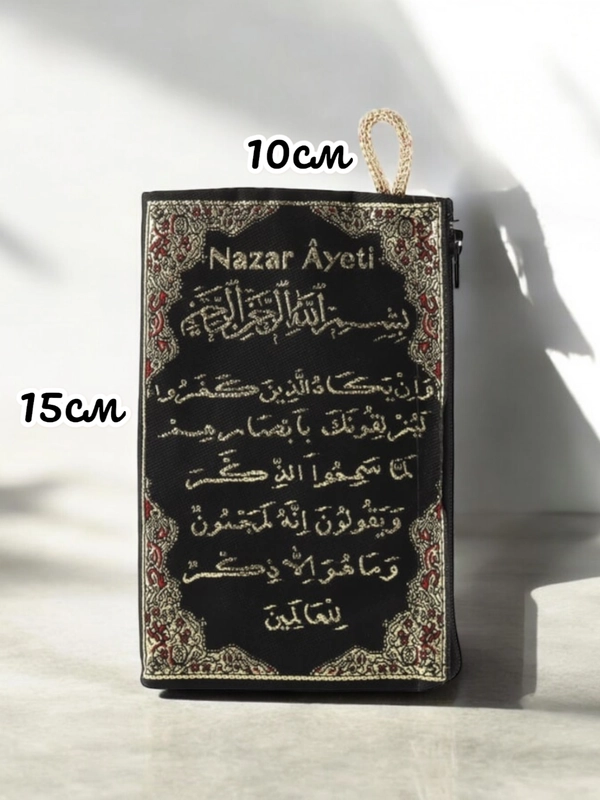 10см
Nazar Âyeti
بِسْمِ اللهِ الرَّحْمَنِ الرَّحِيمِ
15см
وَاِنْ يَكَادُ الَّذِينَ كَفَرُوا
لَيُزْلِقُونَكَ بِاَبْصَارِهِمْ
لَمَّا سَمِعُوا الذِّكْرَ
وَيَقُولُونَ اِنَّهُ لَمَجْنُونٌ
وَمَا هُوَ اِلَّا ذِكْرٌ
لِلْعَالَمِينَ